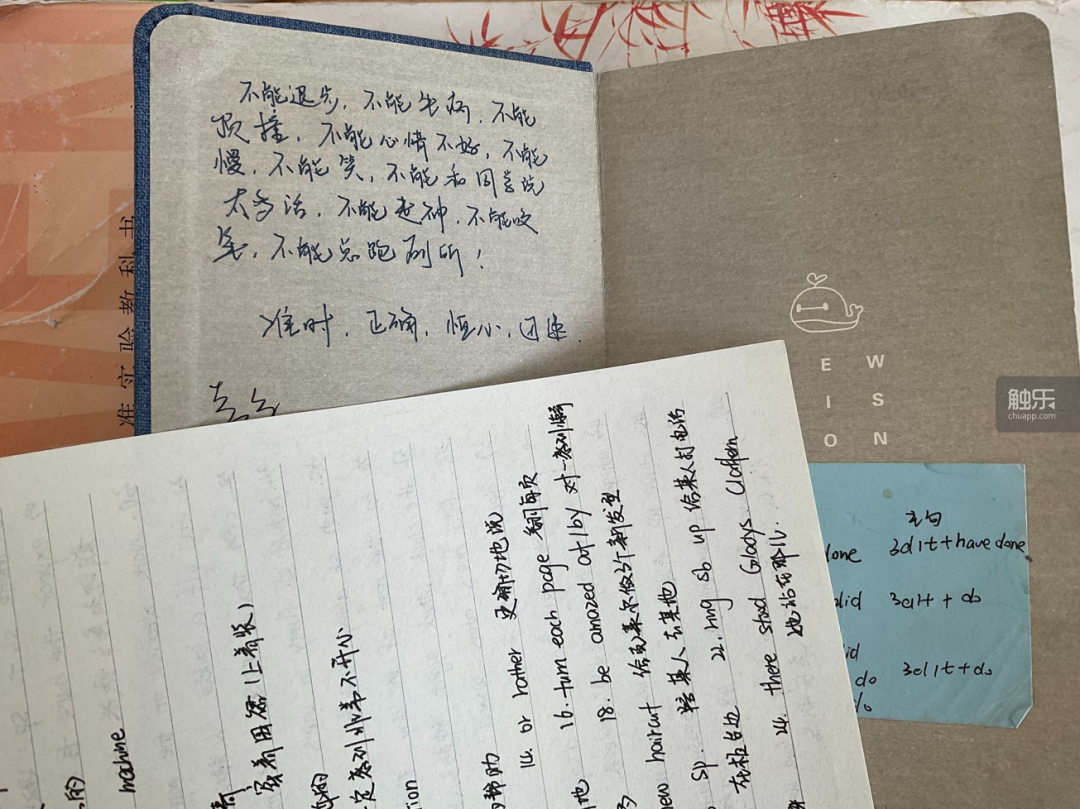 不能退步，不能生病，不能
顶撞，不能心情不好，不能
慢，不能笑，不能和同学说
太多话，不能走神，不能咬
笔，不能总跑厕所！
准时，正确，恒心，迅速.
准实验教科书
E W
I S
O N
触乐
chuapp.com
主句
done 3d1t+have done
did 3d1t + do
id
do 3d1t+do
do
machine
穿着用餐(上着装)
定感到非常不开心
tion
的帮助
14. or rather 更确切地说
16. turn each page 翻每页
18. be amazed at/by 对…感到惊
new haircut 给克莱尔做个新发型
sp. 陪某人去某地
22. ring sb up 给某人打电话
24. there stood Gladys Claffern
她站在那儿.